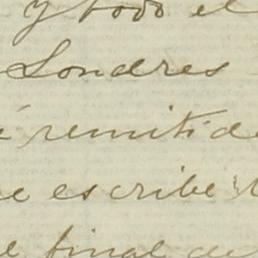 y todo el
Londres
remitid
escribe
el final de